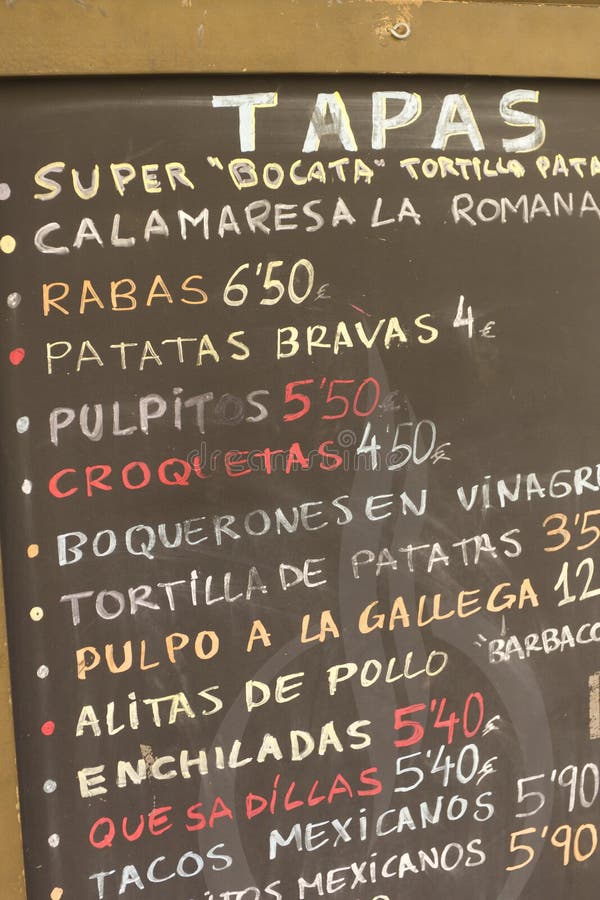 TAPAS
SUPER "BOCATA" TORTILLA PATA
CALAMARES A LA ROMANA
RABAS 6'50€
PATATAS BRAVAS 4€
PULPITOS 5'50€
CROQUETAS 4'50€
BOQUERONES EN VINAGR
TORTILLA DE PATATAS 3'5
PULPO A LA GALLEGA 12
ALITAS DE POLLO "BARBACO
ENCHILADAS 5'40€
QUESADILLAS 5'40€
TACOS MEXICANOS 5'90
ITOS MEXICANOS 5'90